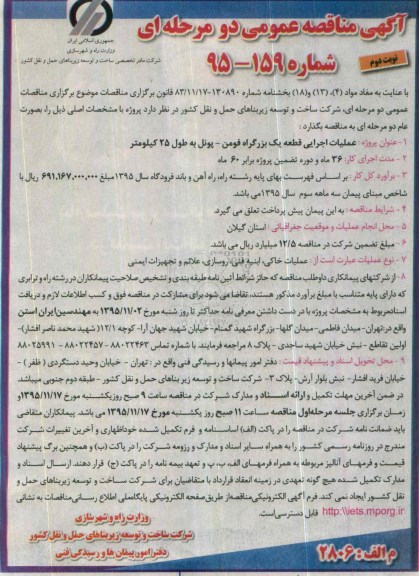 آگهی مناقصه عمومی دو مرحله ای
شماره ۱۵۹-۹۵
نوبت دوم
جمهوری اسلامی ایران
وزارت راه و شهرسازی
شرکت مادر تخصصی ساخت و توسعه زیربناهای حمل و نقل کشور
با عنایت به مفاد مواد (۴)، (۱۳) و(۱۸) بخشنامه شماره ۱۳۰۸۹۰-۸۳/۱۱/۱۷ قانون برگزاری مناقصات موضوع برگزاری مناقصات
عمومی دو مرحله ای، شرکت ساخت و توسعه زیربناهای حمل و نقل کشور در نظر دارد پروژه با مشخصات اصلی ذیل را، بصورت
عام دو مرحله ای به مناقصه بگذارد :
۱- عنوان پروژه : عملیات اجرایی قطعه یک بزرگراه فومن - پونل به طول ۲۵ کیلومتر
۲- مدت اجرای کار: ۳۶ ماه و دوره تضمین پروژه برابر ۶۰ ماه
۳- برآورد کل کار : بر اساس فهرست بهای پایه رشته راه، راه آهن و باند فرودگاه سال ۱۳۹۵ مبلغ ۶۹۱,۱۶۷,۰۰۰,۰۰۰ ریال با
شاخص مبنای پیمان سه ماهه سوم سال ۱۳۹۵ می باشد.
۴- شرایط مناقصه : به این پیمان پیش پرداخت تعلق می گیرد.
۵- محل انجام عملیات و موقعیت جغرافیائی : استان گیلان
۶- مبلغ تضمین شرکت در مناقصه ۱۲/۵ میلیارد ریال می باشد.
۷- نوع عملیات عبارت است از : عملیات خاکی، ابنیه فنی، روسازی، علائم و تجهیزات ایمنی
۸- از شرکتهای پیمانکاری داوطلب مناقصه که حائز شرائط آئین نامه طبقه بندی و تشخیص صلاحیت پیمانکاران در رشته راه و ترابری
که دارای پایه متناسب با مبلغ برآورد مذکور هستند، تقاضا می شود برای مشارکت در مناقصه فوق و کسب اطلاعات لازم و دریافت
اسناد مربوط به مشخصات پروژه با در دست داشتن معرفی نامه حداکثر تا روز شنبه مورخ ۱۳۹۵/۱۱/۰۲ به مهندسین ایران استن
واقع در: تهران- میدان فاطمی- میدان گلها- بزرگراه شهید گمنام- خیابان شهید جهان آرا- کوچه ۱۲/۱ (شهید محمد ناصر افشار)-
اولین تقاطع - نبش خیابان شهید ساجدی - پلاک ۸ مراجعه فرمایند. با شماره تماس ۸۸۰۲۲۴۶۳ - ۸۸۰۲۲۴۵۷ - ۸۸۰۲۵۹۹۱
۹- محل تحویل اسناد و پیشنهاد قیمت : دفتر امور پیمانها و رسیدگی فنی واقع در : تهران - خیابان وحید دستگردی ( ظفر ) -
خیابان فرید افشار- نبش بلوار آرش- پلاک ۳- شرکت ساخت و توسعه زیر بنا های حمل و نقل کشور - طبقه دوم جنوبی میباشد.
در ضمن آخرین مهلت تکمیل و ارائه اسناد و مدارک شرکت در مناقصه ساعت ۹ صبح روز یکشنبه مورخ ۱۳۹۵/۱۱/۱۷ و
زمان برگزاری جلسه مرحله اول مناقصه ساعت ۱۱ صبح روز یکشنبه مورخ ۱۳۹۵/۱۱/۱۷ می باشد. پیمانکاران متقاضی
باید ضمانت نامه شرکت در مناقصه را در پاکت (الف) اساسنامه و فرم تکمیل شده خوداظهاری و آخرین تغییرات شرکت
مندرج در روزنامه رسمی کشور را به همراه سایر اسناد و مدارک و رزومه شرکت را در پاکت (ب) و همچنین برگ پیشنهاد
قیمت و فرمهای آنالیز مربوطه به همراه فرمهای الف، ب، پ و تعهد بیمه نامه را در پاکت (ج) قرار دهند. ارسال اسناد و
مدارک تکمیل شده هیچ گونه تعهدی در زمینه انعقاد قرارداد با متقاضیان برای شرکت ساخت و توسعه زیربناهای حمل و
نقل کشور ایجاد نمی کند. فرم آگهی الکترونیکی مناقصه از طریق صفحه الکترونیکی پایگاه ملی اطلاع رسانی مناقصات به نشانی
http:\\iets.mporg.ir قابل دسترسی است.
وزارت راه و شهرسازی
شرکت ساخت و توسعه زیربناهای حمل و نقل کشور
دفتر امور پیمان ها و رسیدگی فنی
م الف: ۲۸۰۶